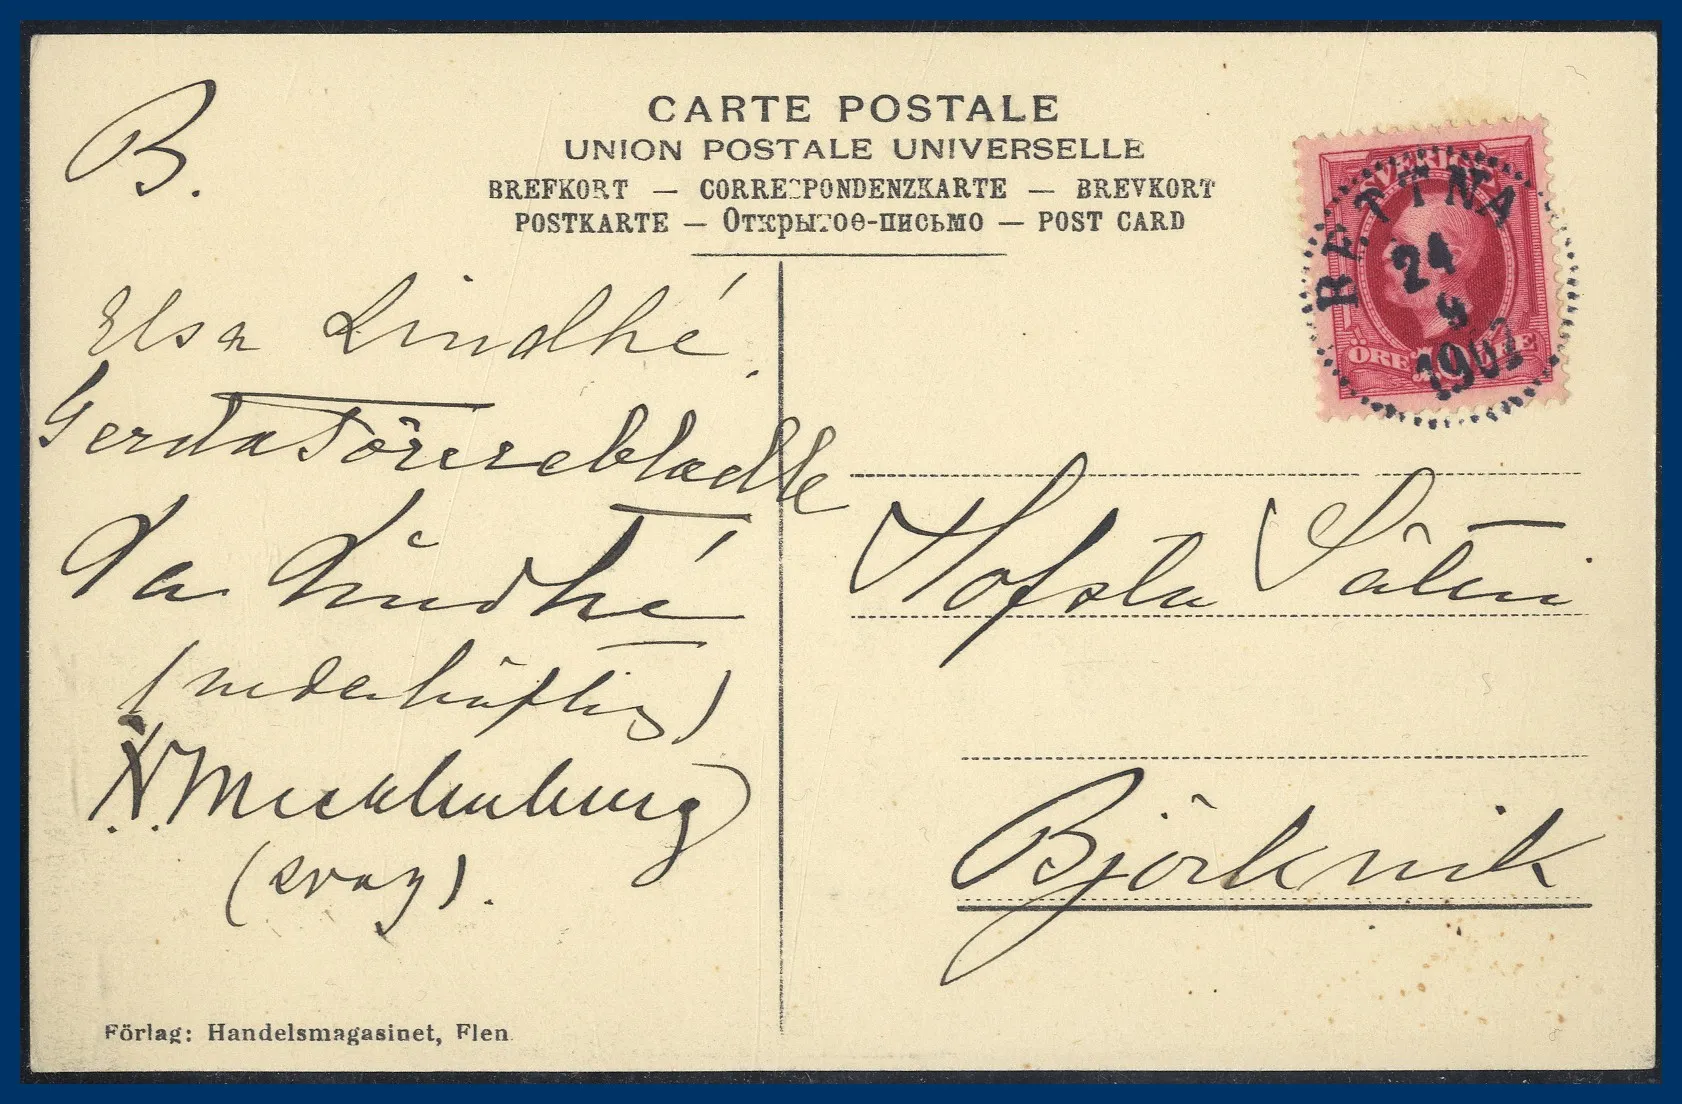 B.
CARTE POSTALE
UNION POSTALE UNIVERSELLE
BREFKORT — CORRESPONDENZKARTE — BREVKORT
POSTKARTE — Открытое-письмо — POST CARD
SVERIGE
BETTNA
24
9
190
ÖRE ÖRE
Elsa Lindhé.
Gerda
Lindhé
Hofsta Säteri
N. Mecklenburg
(svag).
Björkvik
Förlag: Handelsmagasinet, Flen